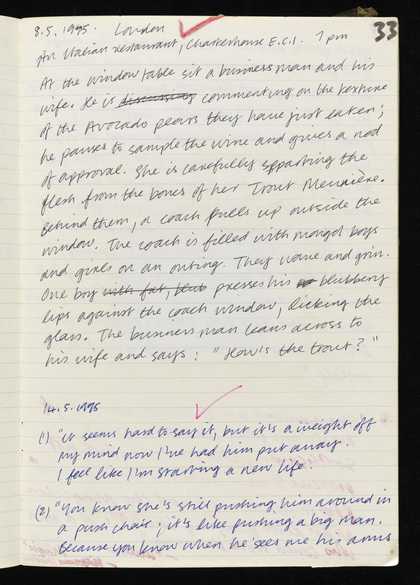 33
8.5.1975 London
An Italian restaurant, Charterhouse E.C.1. 1 pm
At the window table sit a business man and his
wife. He is discussing commenting on the texture
of the Avocado pears they have just eaten;
he pauses to sample the wine and gives a nod
of approval. She is carefully sparting the
flesh from the bones of her Trout Meunière.
Behind them, a coach pulls up outside the
window. The coach is filled with mongol boys
and girls on an outing. They wave and grin.
One boy with fat, blub presses his blubbery
lips against the coach window, licking the
glass. The business man leans across to
his wife and says: "How's the trout?"
14.5.1975
(1) "it seems hard to say it, but it's a weight off
my mind now I've had him put away.
I feel like I'm starting a new life
(2) "You know she's still pushing him around in
a push chair; it's like pushing a big man.
Because you know when he sees me his arms